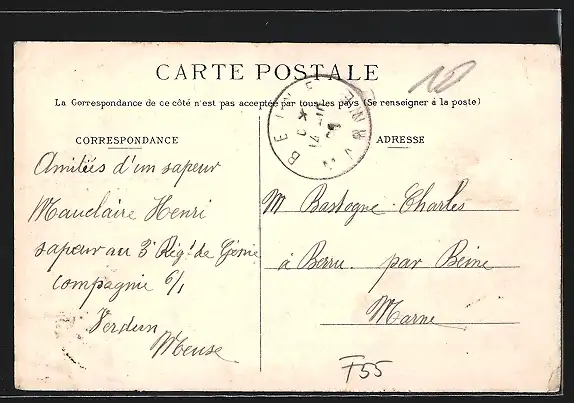 CARTE POSTALE
La Correspondance de ce côté n'est pas acceptée par tous les pays (Se renseigner à la poste)
CORRESPONDANCE
Amitiés d'un sapeur
Mauclaire Henri
sapeur au 3e Régt de Génie
Compagnie 6/1
Verdun
Meuse
BEINE
MARNE
ADRESSE
M Bastogne Charles
à Berru par Beine
Marne
F55